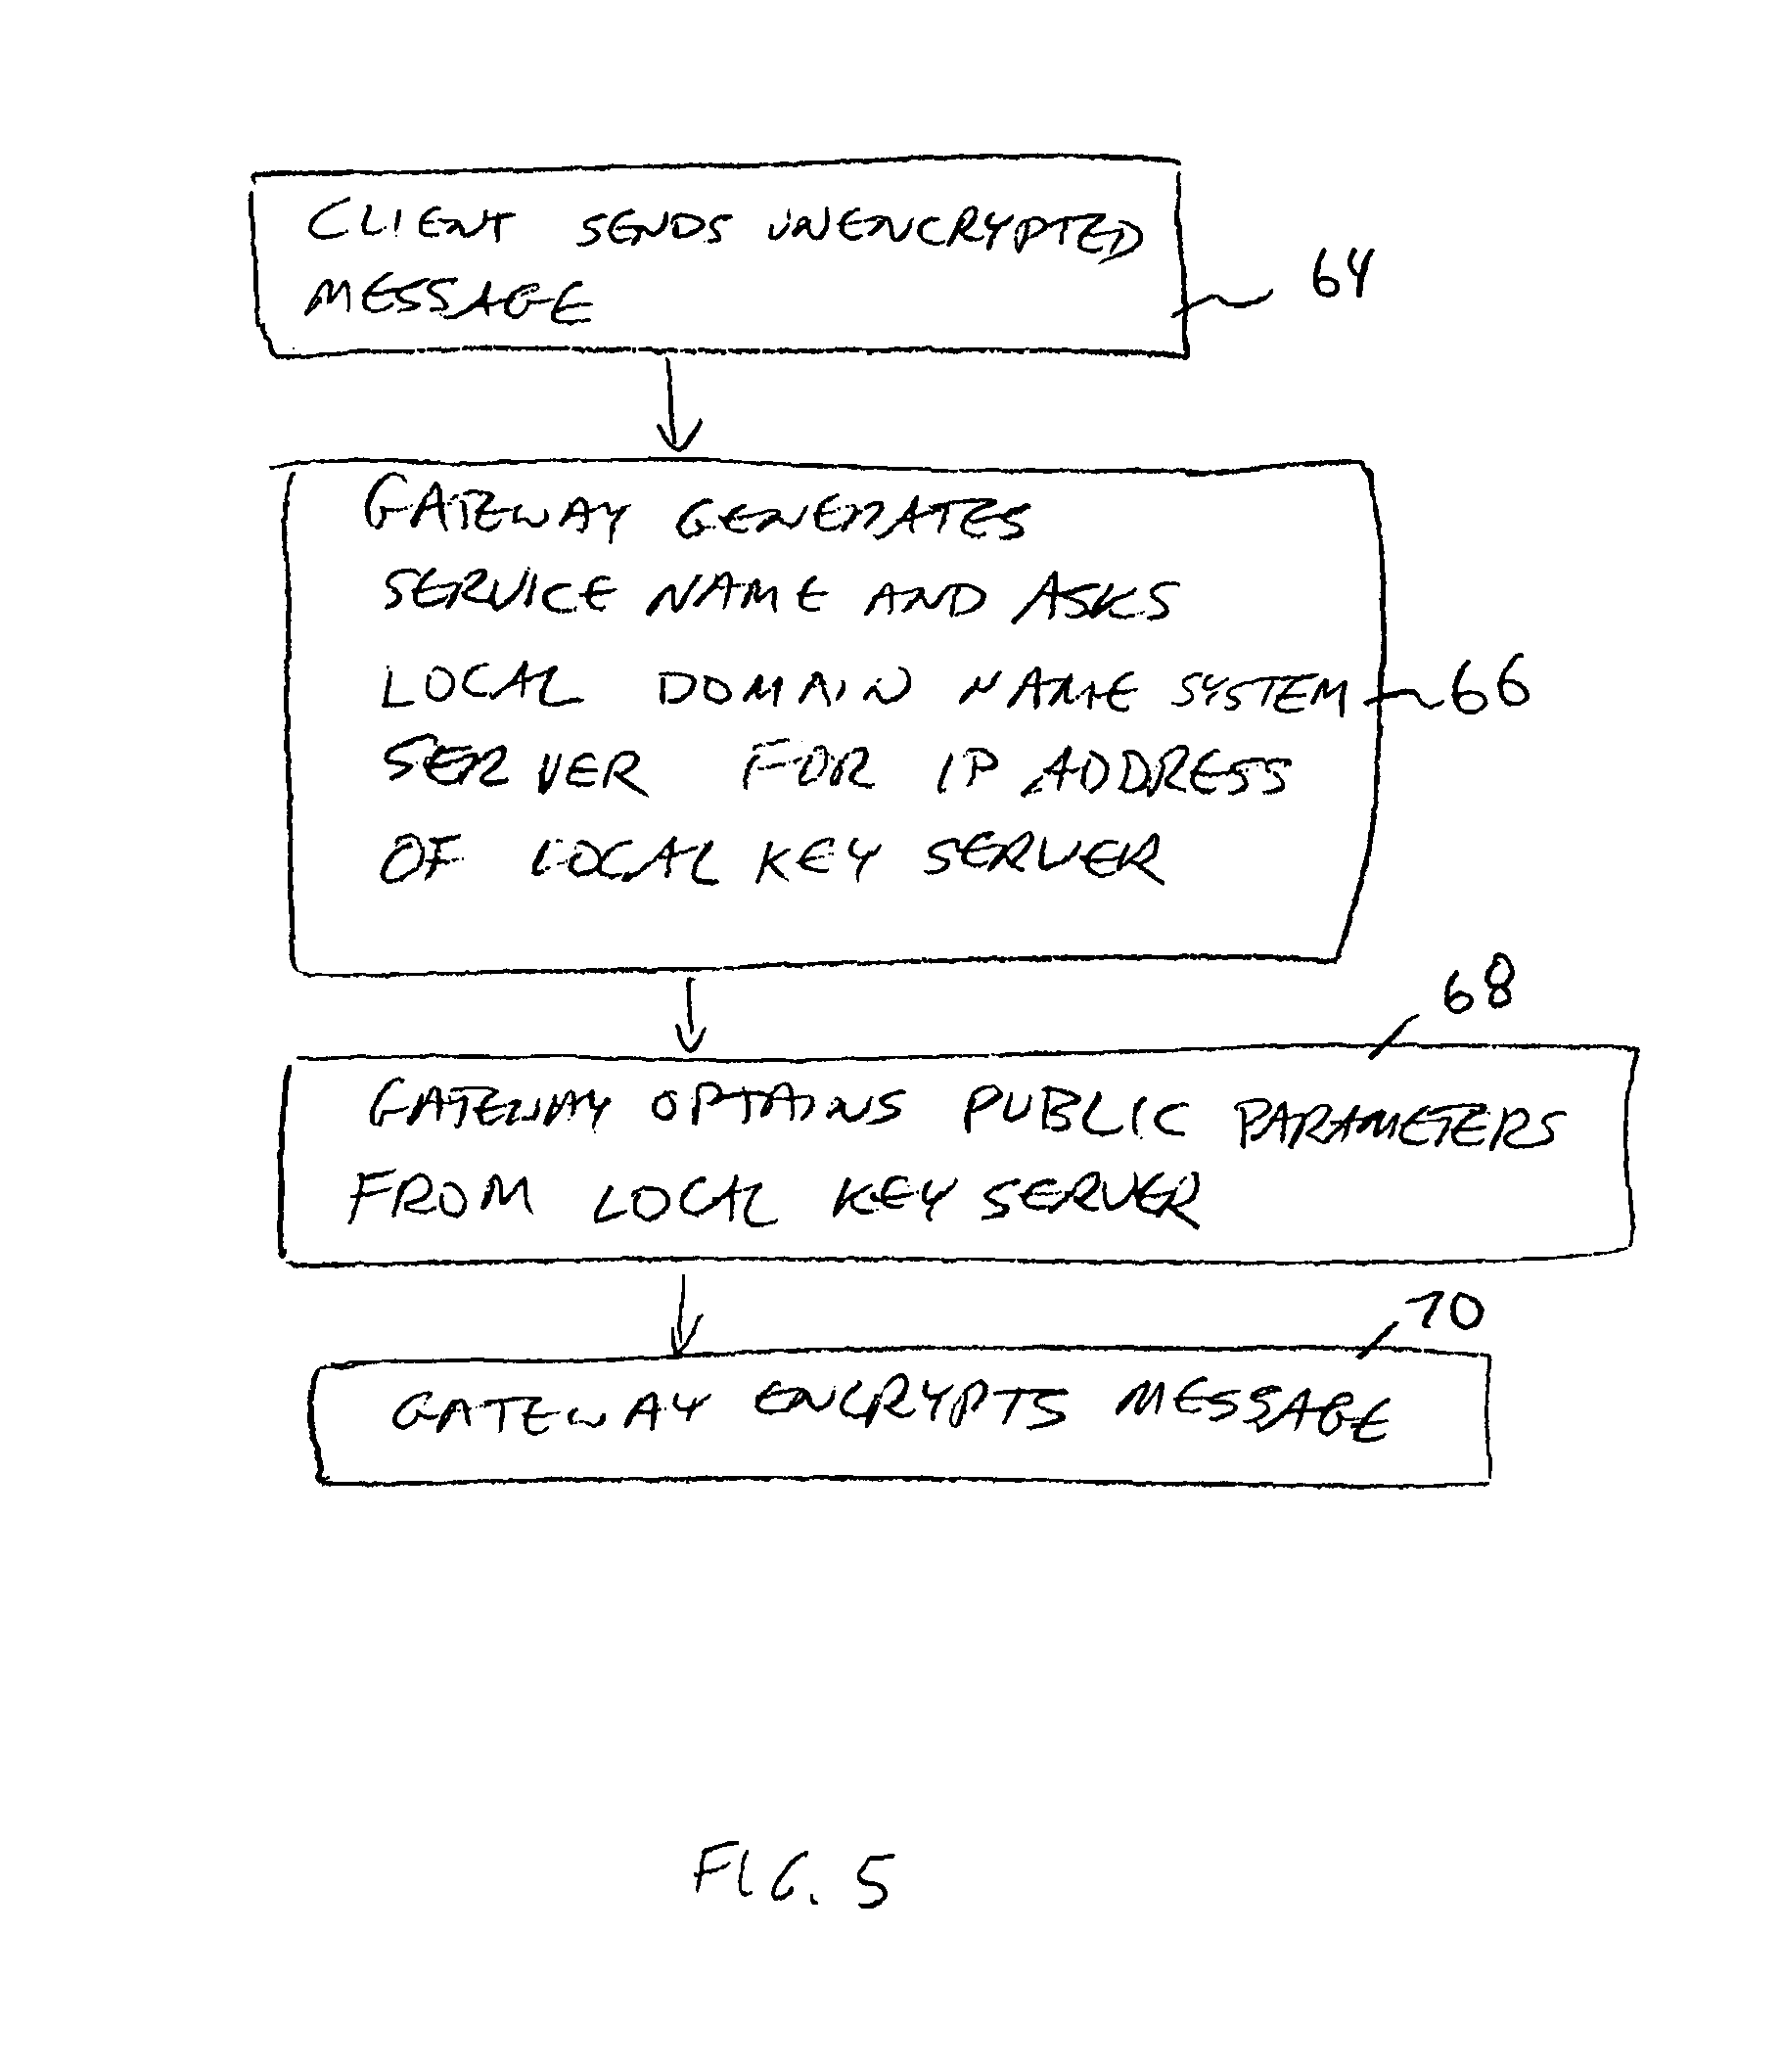 CLIENT SENDS UNENCRYPTED
MESSAGE
64
GATEWAY GENERATES
SERVICE NAME AND ASKS
LOCAL DOMAIN NAME SYSTEM
66
SERVER FOR IP ADDRESS
OF LOCAL KEY SERVER
68
GATEWAY OPTAINS PUBLIC PARAMETERS
FROM LOCAL KEY SERVER
70
GATEWAY ENCRYPTS MESSAGE
FIG. 5